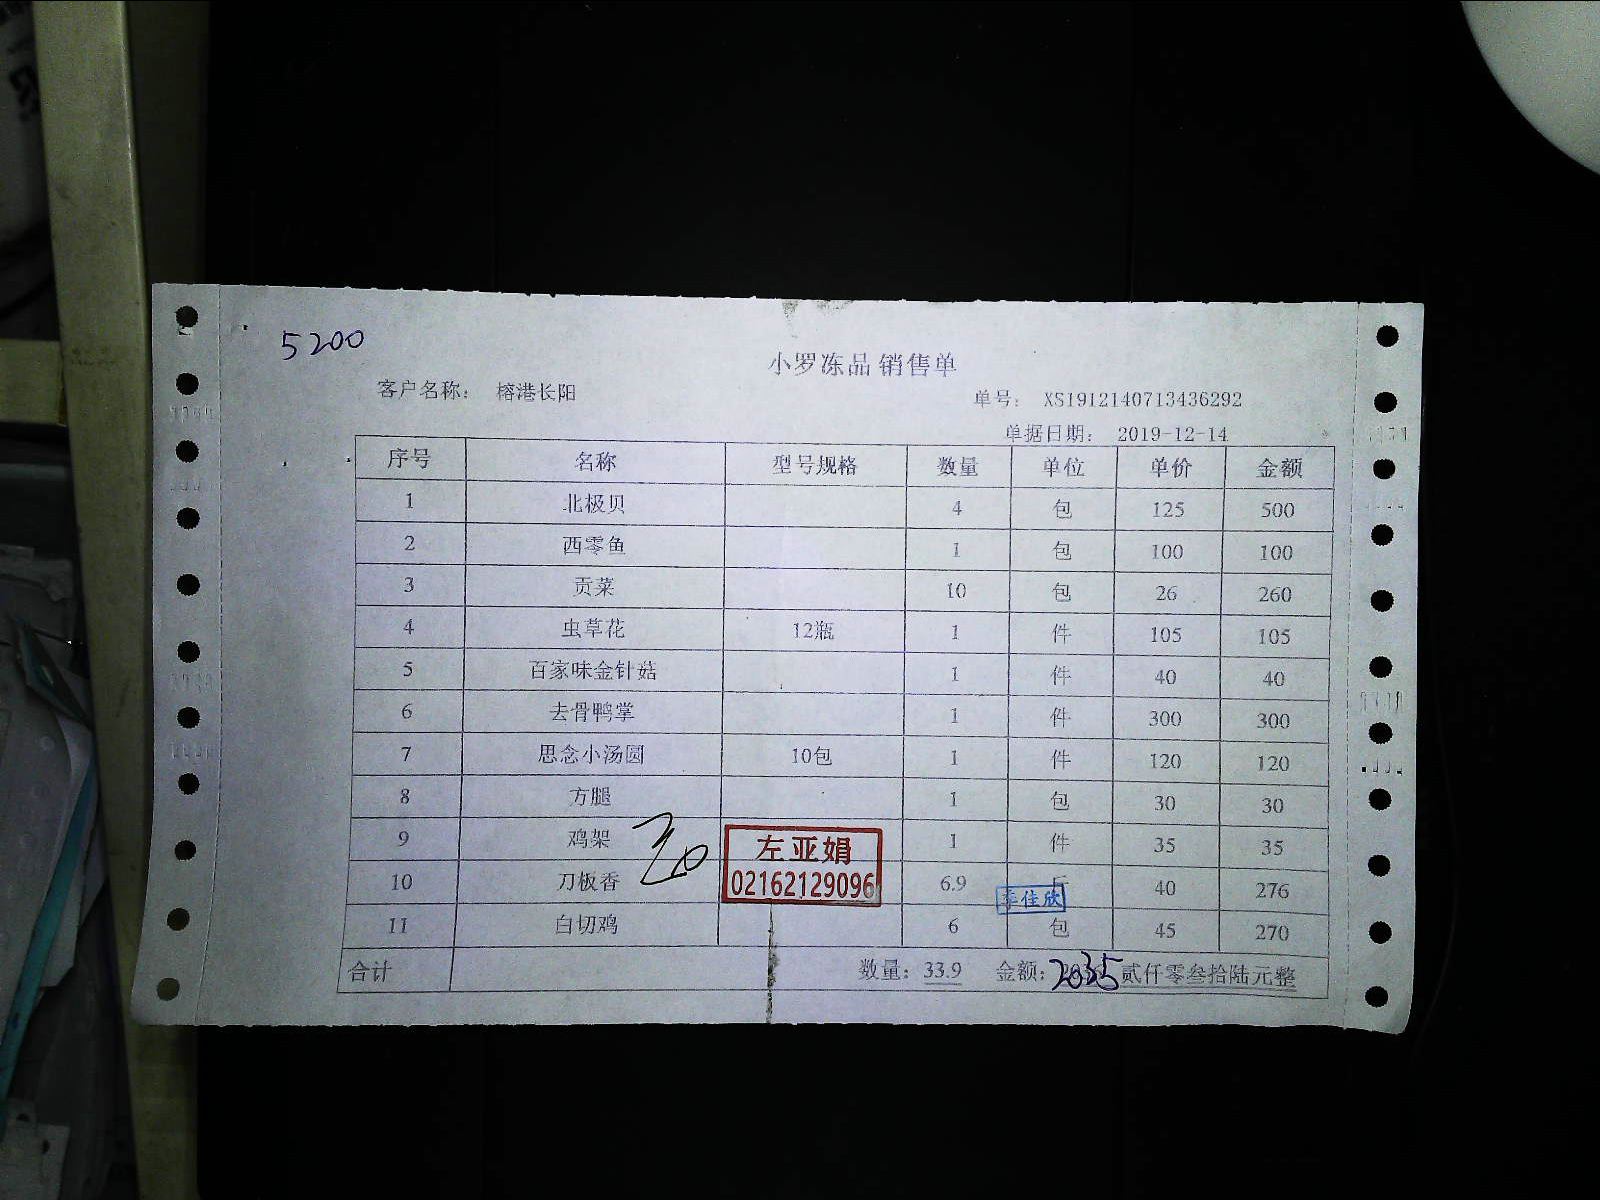 5200
小罗冻品 销售单
客户名称： 榕港长阳
单号： XS1912140713436292
单据日期： 2019-12-14
序号 名称 型号规格 数量 单位 单价 金额
1 北极贝 4 包 125 500
2 西零鱼 1 包 100 100
3 贡菜 10 包 26 260
4 虫草花 12瓶 1 件 105 105
5 百家味金针菇 1 件 40 40
6 去骨鸭掌 1 件 300 300
7 思念小汤圆 10包 1 件 120 120
8 方腿 1 包 30 30
9 鸡架 1 件 35 35
左亚娟
02162129096
10 刀板香 6.9 斤 40 276
11 白切鸡 6 包 45 270
合计 数量：33.9 金额：2035 贰仟零叁拾陆元整